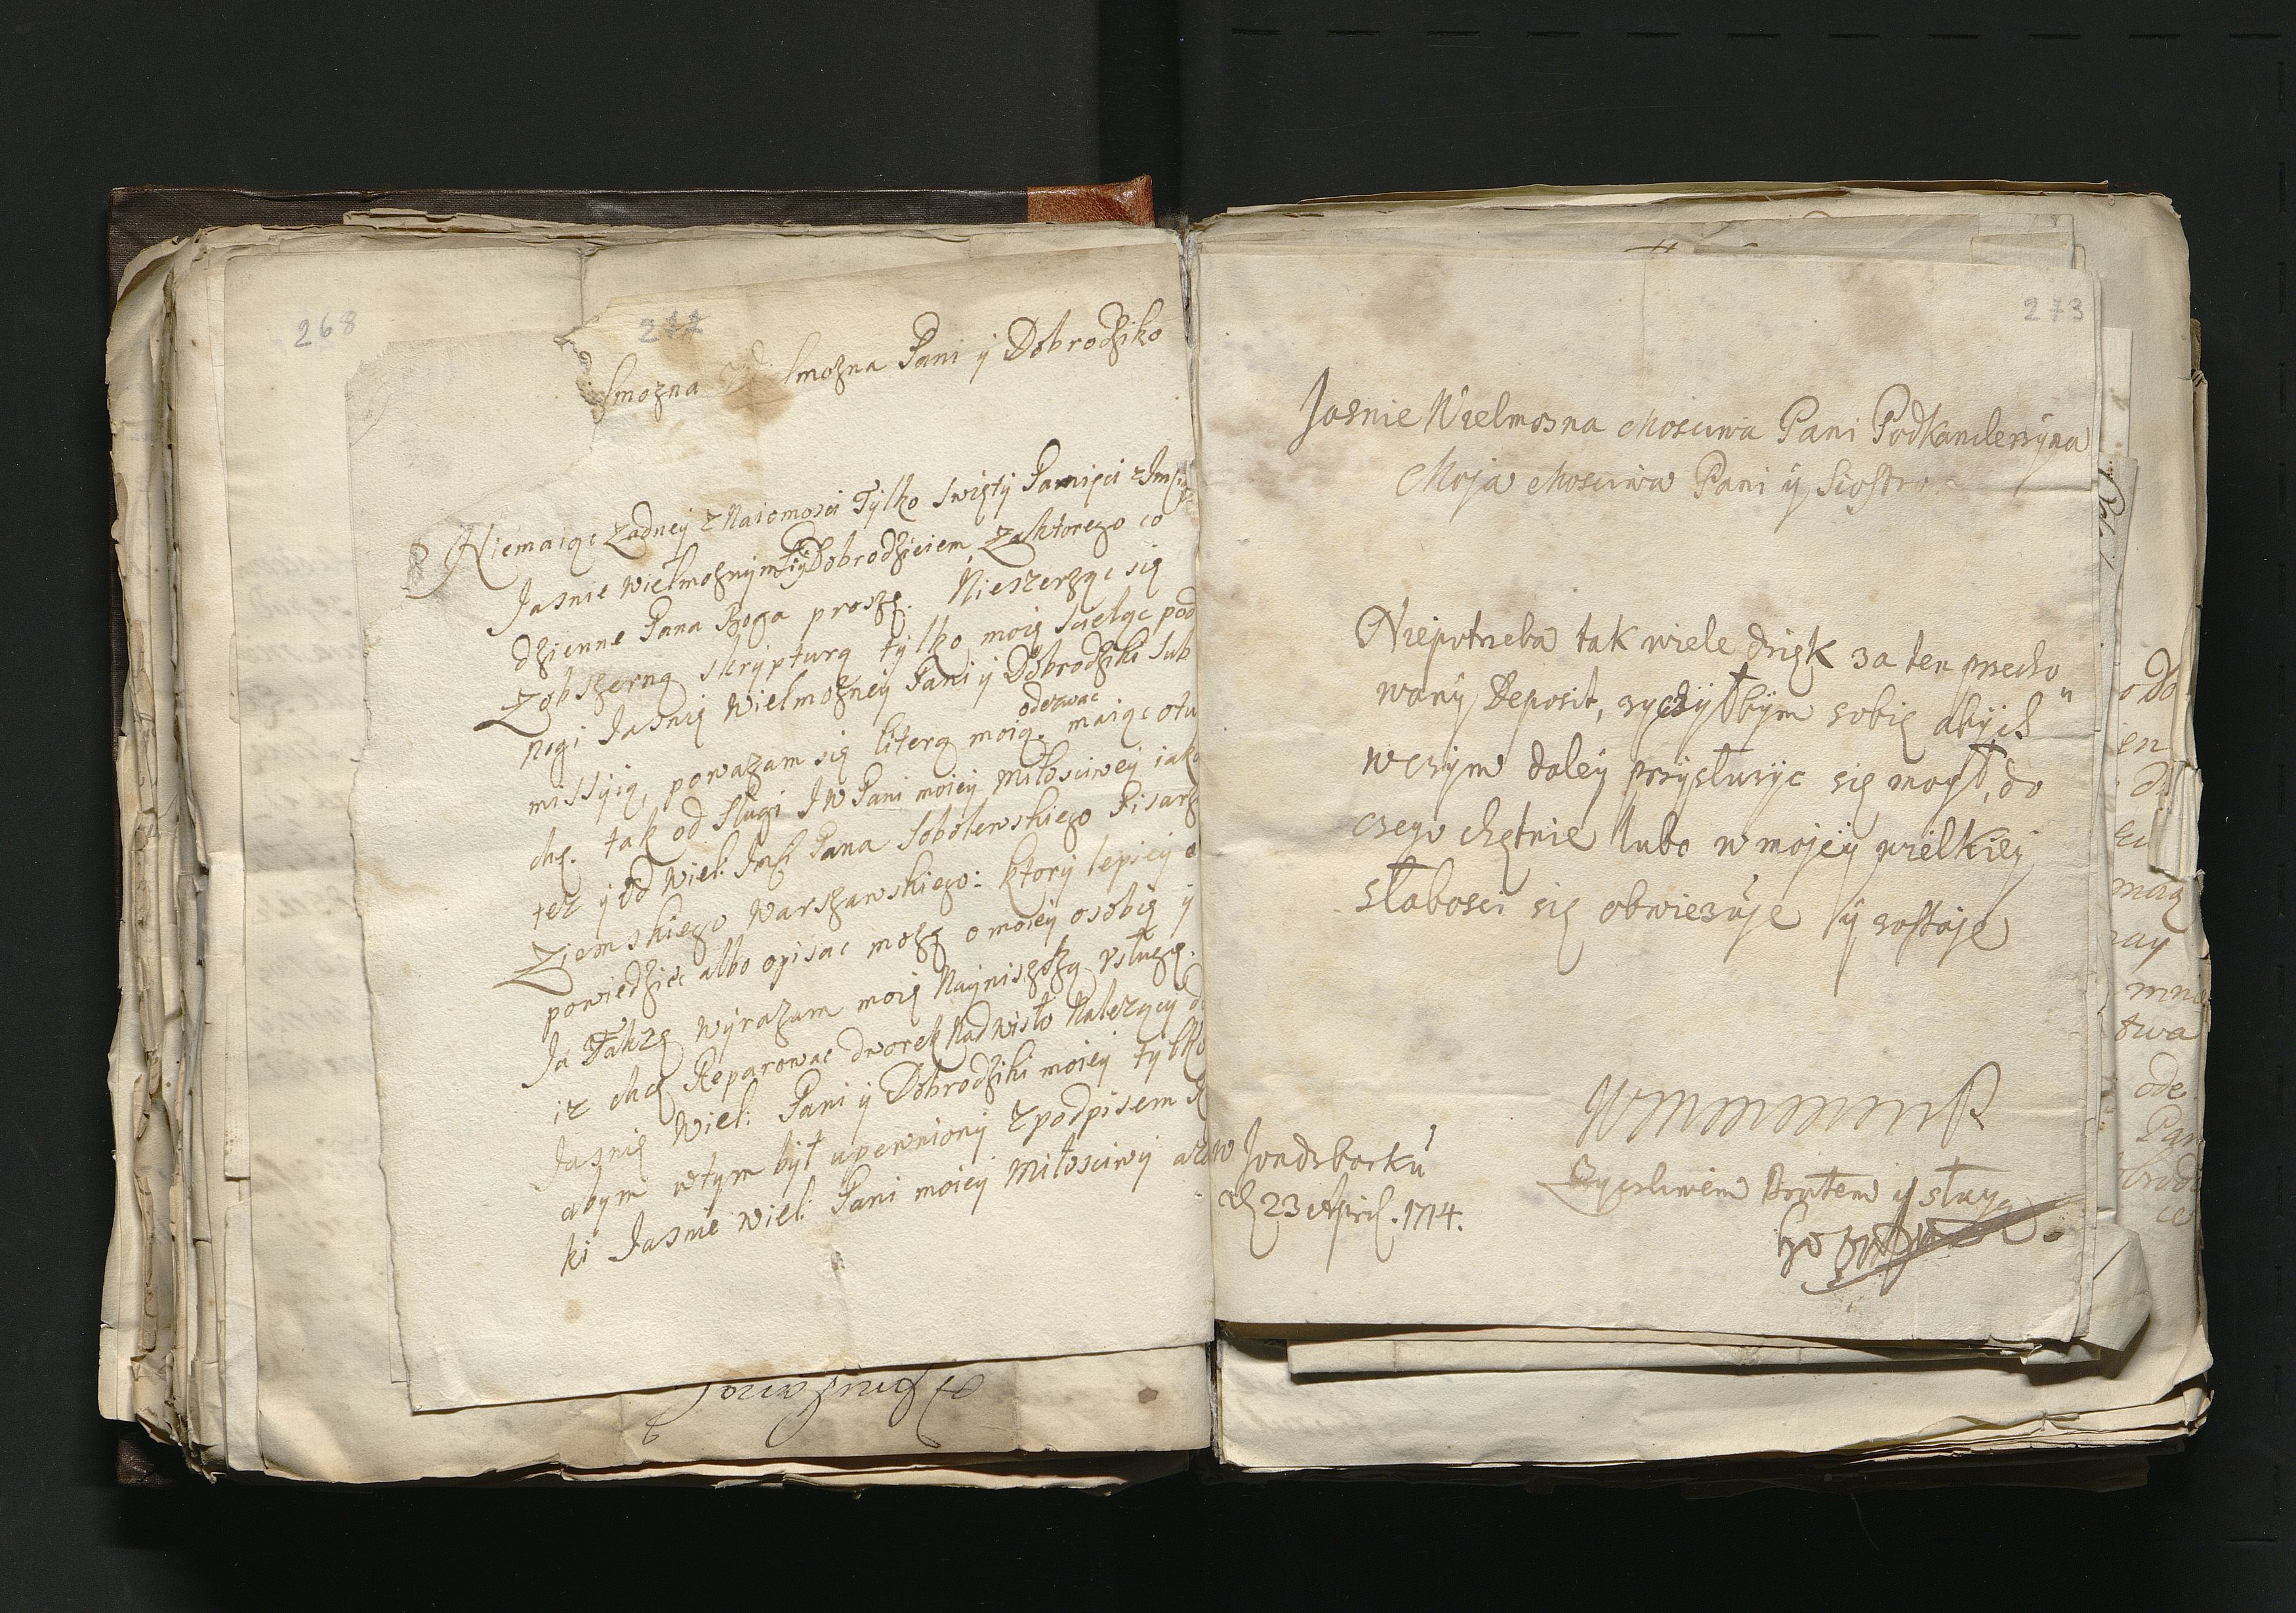 268
272
lmożna Wielmożna Pani y Dobrodziko
Niemaiąc żadney znaiomosci Tylko swięty Pamięci z Jmsci
Jasnie wielmożnym Dobrodzieiem, zaktorego co
dzienne Pana Boga proszę. Nieszerząc się
zobszerną skrypturą tylko moię scieląc pod
nogi Jasnię Wielmożney Pani y Dobrodziki sub
missyią, poważam się literą moią odezwac maiąc otu
chę. tak od Sługi JW Pani moiey Miłosciwey iako
tez y od Wiel: Jmsci Pana Sobolewskiego Pisarz
Ziemskiego Warszawskiego: ktory lepiey o
powiedziec albo opisac możę o moiey osobię y
Ja Takżę wyrażam moię Nayniszożą usługę.
iz chcę Reparowac dworek Nad wisło Należący do
Jasnię Wiel: Pani y Dobrodziki moiey tylko
abym wtym był upewniony z podpisem R
ki Jasnie Wiel: Pani moiey Miłosciwy aże
273
Jasnie Wielmozna Mosciwa Pani Podkanclerzyna
Moja Mosciwa Pani y Siostro.
Niepotrzeba tak wiele dzięk za ten przecho
wany Deposit, zyczyłbym sobię abych
wczym daley przysłuzyc się mogł, do
czego chętnie lubo w mojey wielkiey
słabosci się obwiezuje y zostaje
w Jondzborku
d. 23 April. 1714.
Zyczliwem Bratem y sługą